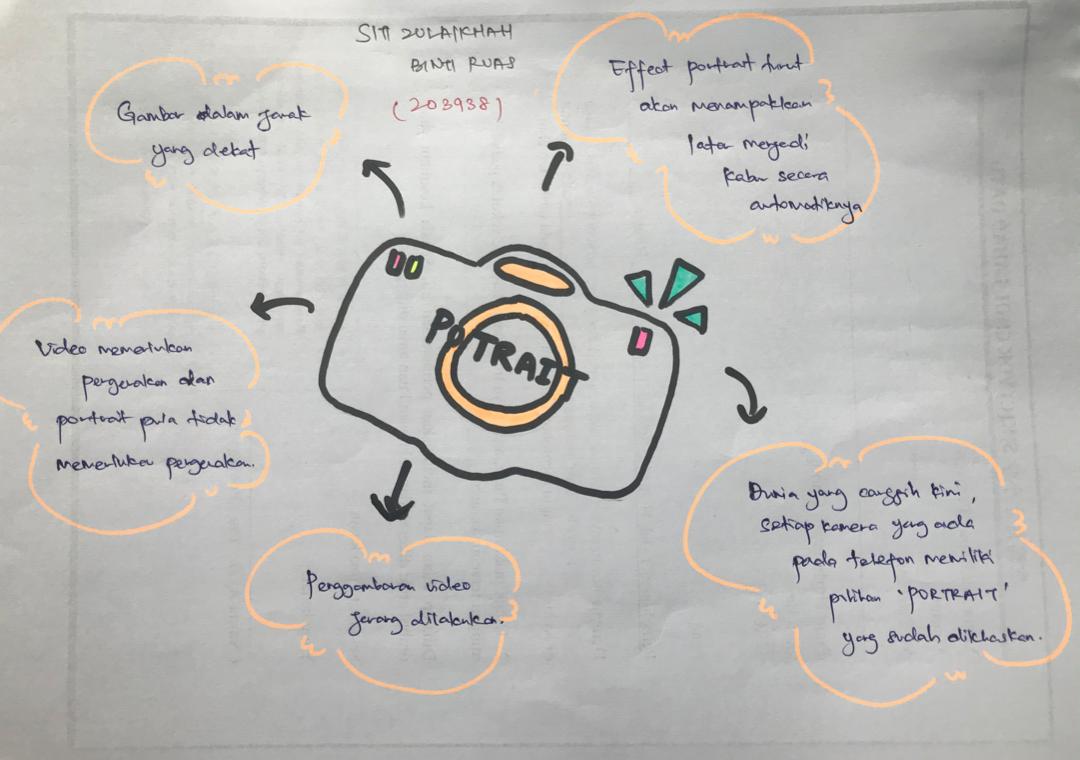 SITI ZULAIKHAH
BINTI RUAS
(203938)
Gambar dalam jarak
yang dekat
Effect portrait turut
akan menampakkan
latar menjadi
kabur secara
automatiknya
POTRAIT
Video memerlukan
pergerakan dan
portrait pula tidak
memerlukan pergerakan.
Penggambaran video
jarang dilakukan.
Dunia yang canggih kini,
setiap kamera yang ada
pada telefon memiliki
pilihan 'PORTRAIT'
yang sudah dikhaskan.